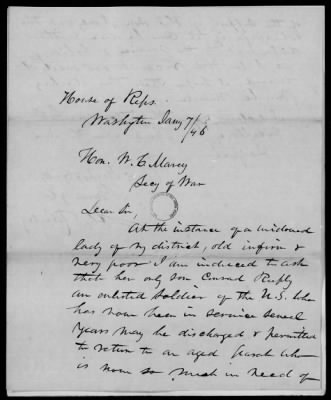 House of Reps.
Washington Jany 7/46
Hon. W. L. Marcy
Secy of War
Dear Sir,
At the instance of a widowed
lady of my district, old infirm &
very poor I am induced to ask
that her only son Conrad
an enlisted soldier of the U.S. who
has now been in service several
years may be discharged & permitted
to return to an aged parent who
is now so much in need of